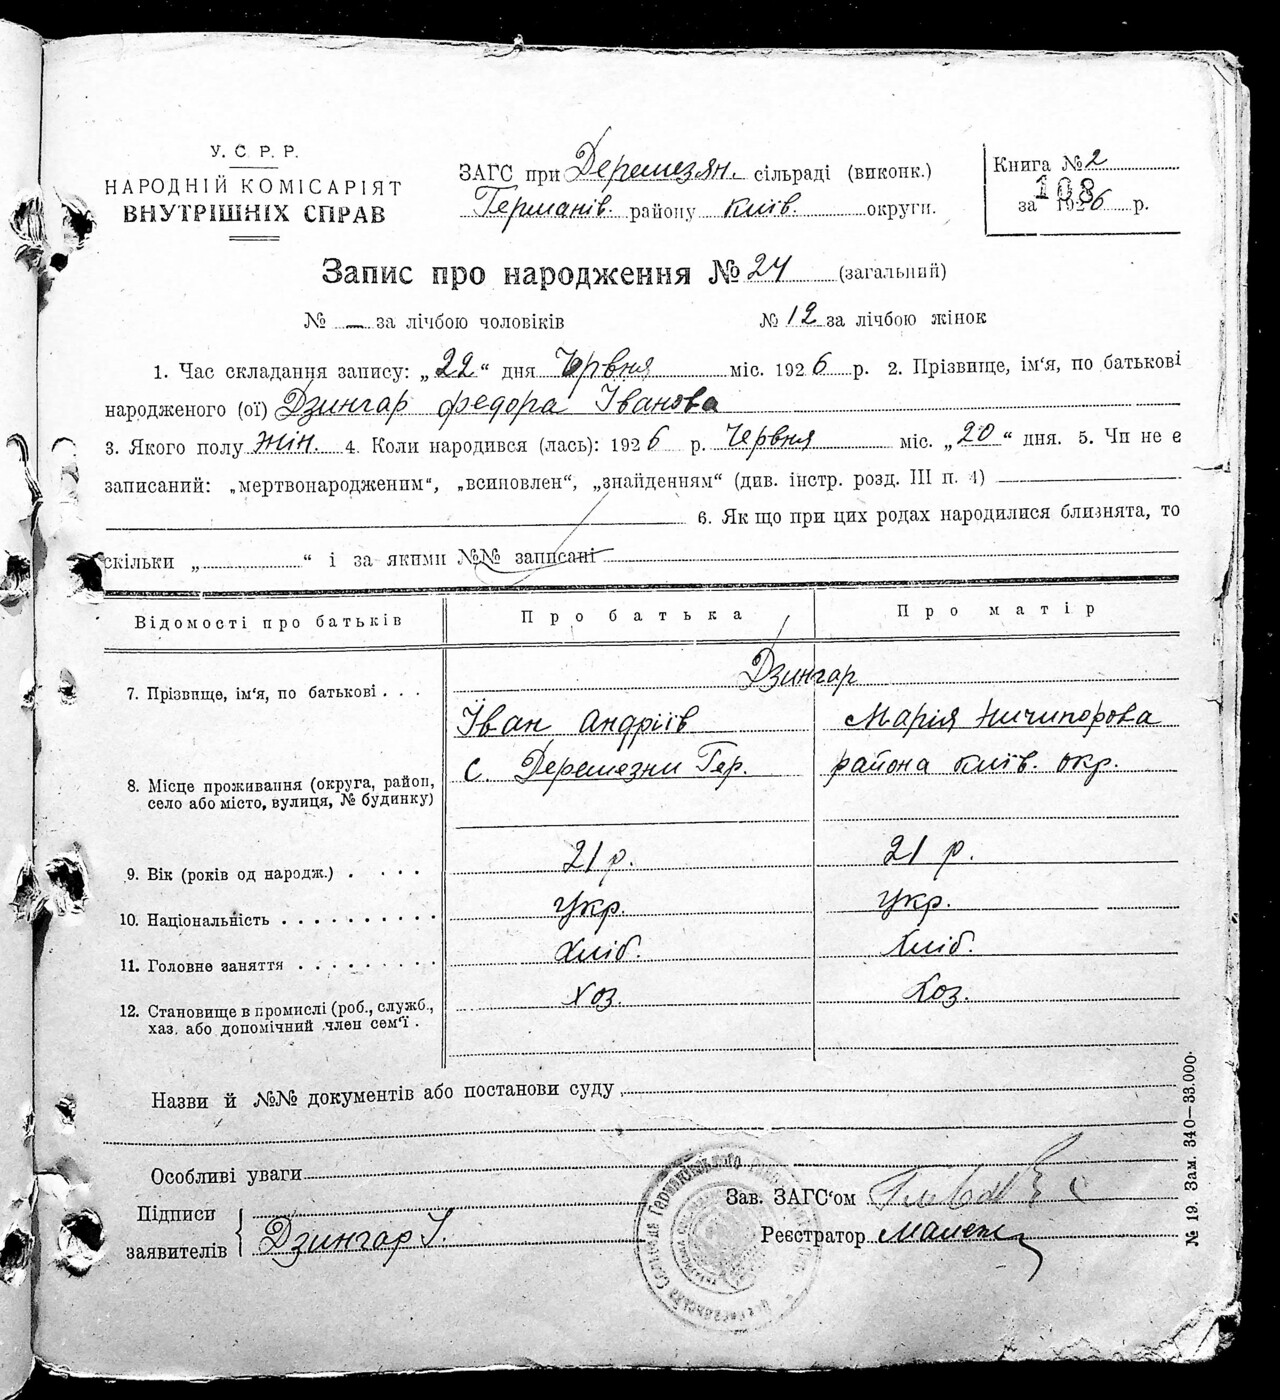 У. С. Р. Р.
НАРОДНІЙ КОМІСАРІЯТ
ВНУТРІШНІХ СПРАВ
ЗАГС при Деремезян. сільраді (виконк.)
Германів. району Київ. округи.
Книга № 2
108
за 1926 р.
Запис про народження № 24 (загальний)
№ — за лічбою чоловіків № 12 за лічбою жінок
1. Час складання запису: „22“ дня Червня міс. 1926 р. 2. Прізвище, ім‘я, по батькові
народженого (ої) Дзингар Федора Іванова
3. Якого полу жін. 4. Коли народився (лась): 1926 р. Червня міс. „20“ дня. 5. Чи не є
записаний: „мертвонародженим“, „всиновлен“, „знайденням“ (див. інстр. розд. III п. 4)
6. Як що при цих родах народилися близнята, то
скільки „ “ і за якими №№ записані
Відомості про батьків Про батька Про матір
7. Прізвище, ім‘я, по батькові . . . Дзингар
Іван Андріїв Марія Ничипорова
8. Місце проживання (округа, район, село або місто, вулиця, № будинку) с. Деремезни Гер. района Київ. окр.
9. Вік (років од народж.) . . . . . 21 р. 21 р.
10. Національність . . . . . . . . . . Укр. Укр.
11. Головне заняття . . . . . . . . . Хліб. Хліб.
12. Становище в промислі (роб., служб., хаз. або допомічний член сем‘ї . Хоз. Хоз.
Назви й №№ документів або постанови суду
Особливі уваги
Підписи
заявителів { Дзингар І.
Зав. ЗАГС‘ом
Реєстратор
№ 19. Зам. 340—33.000.